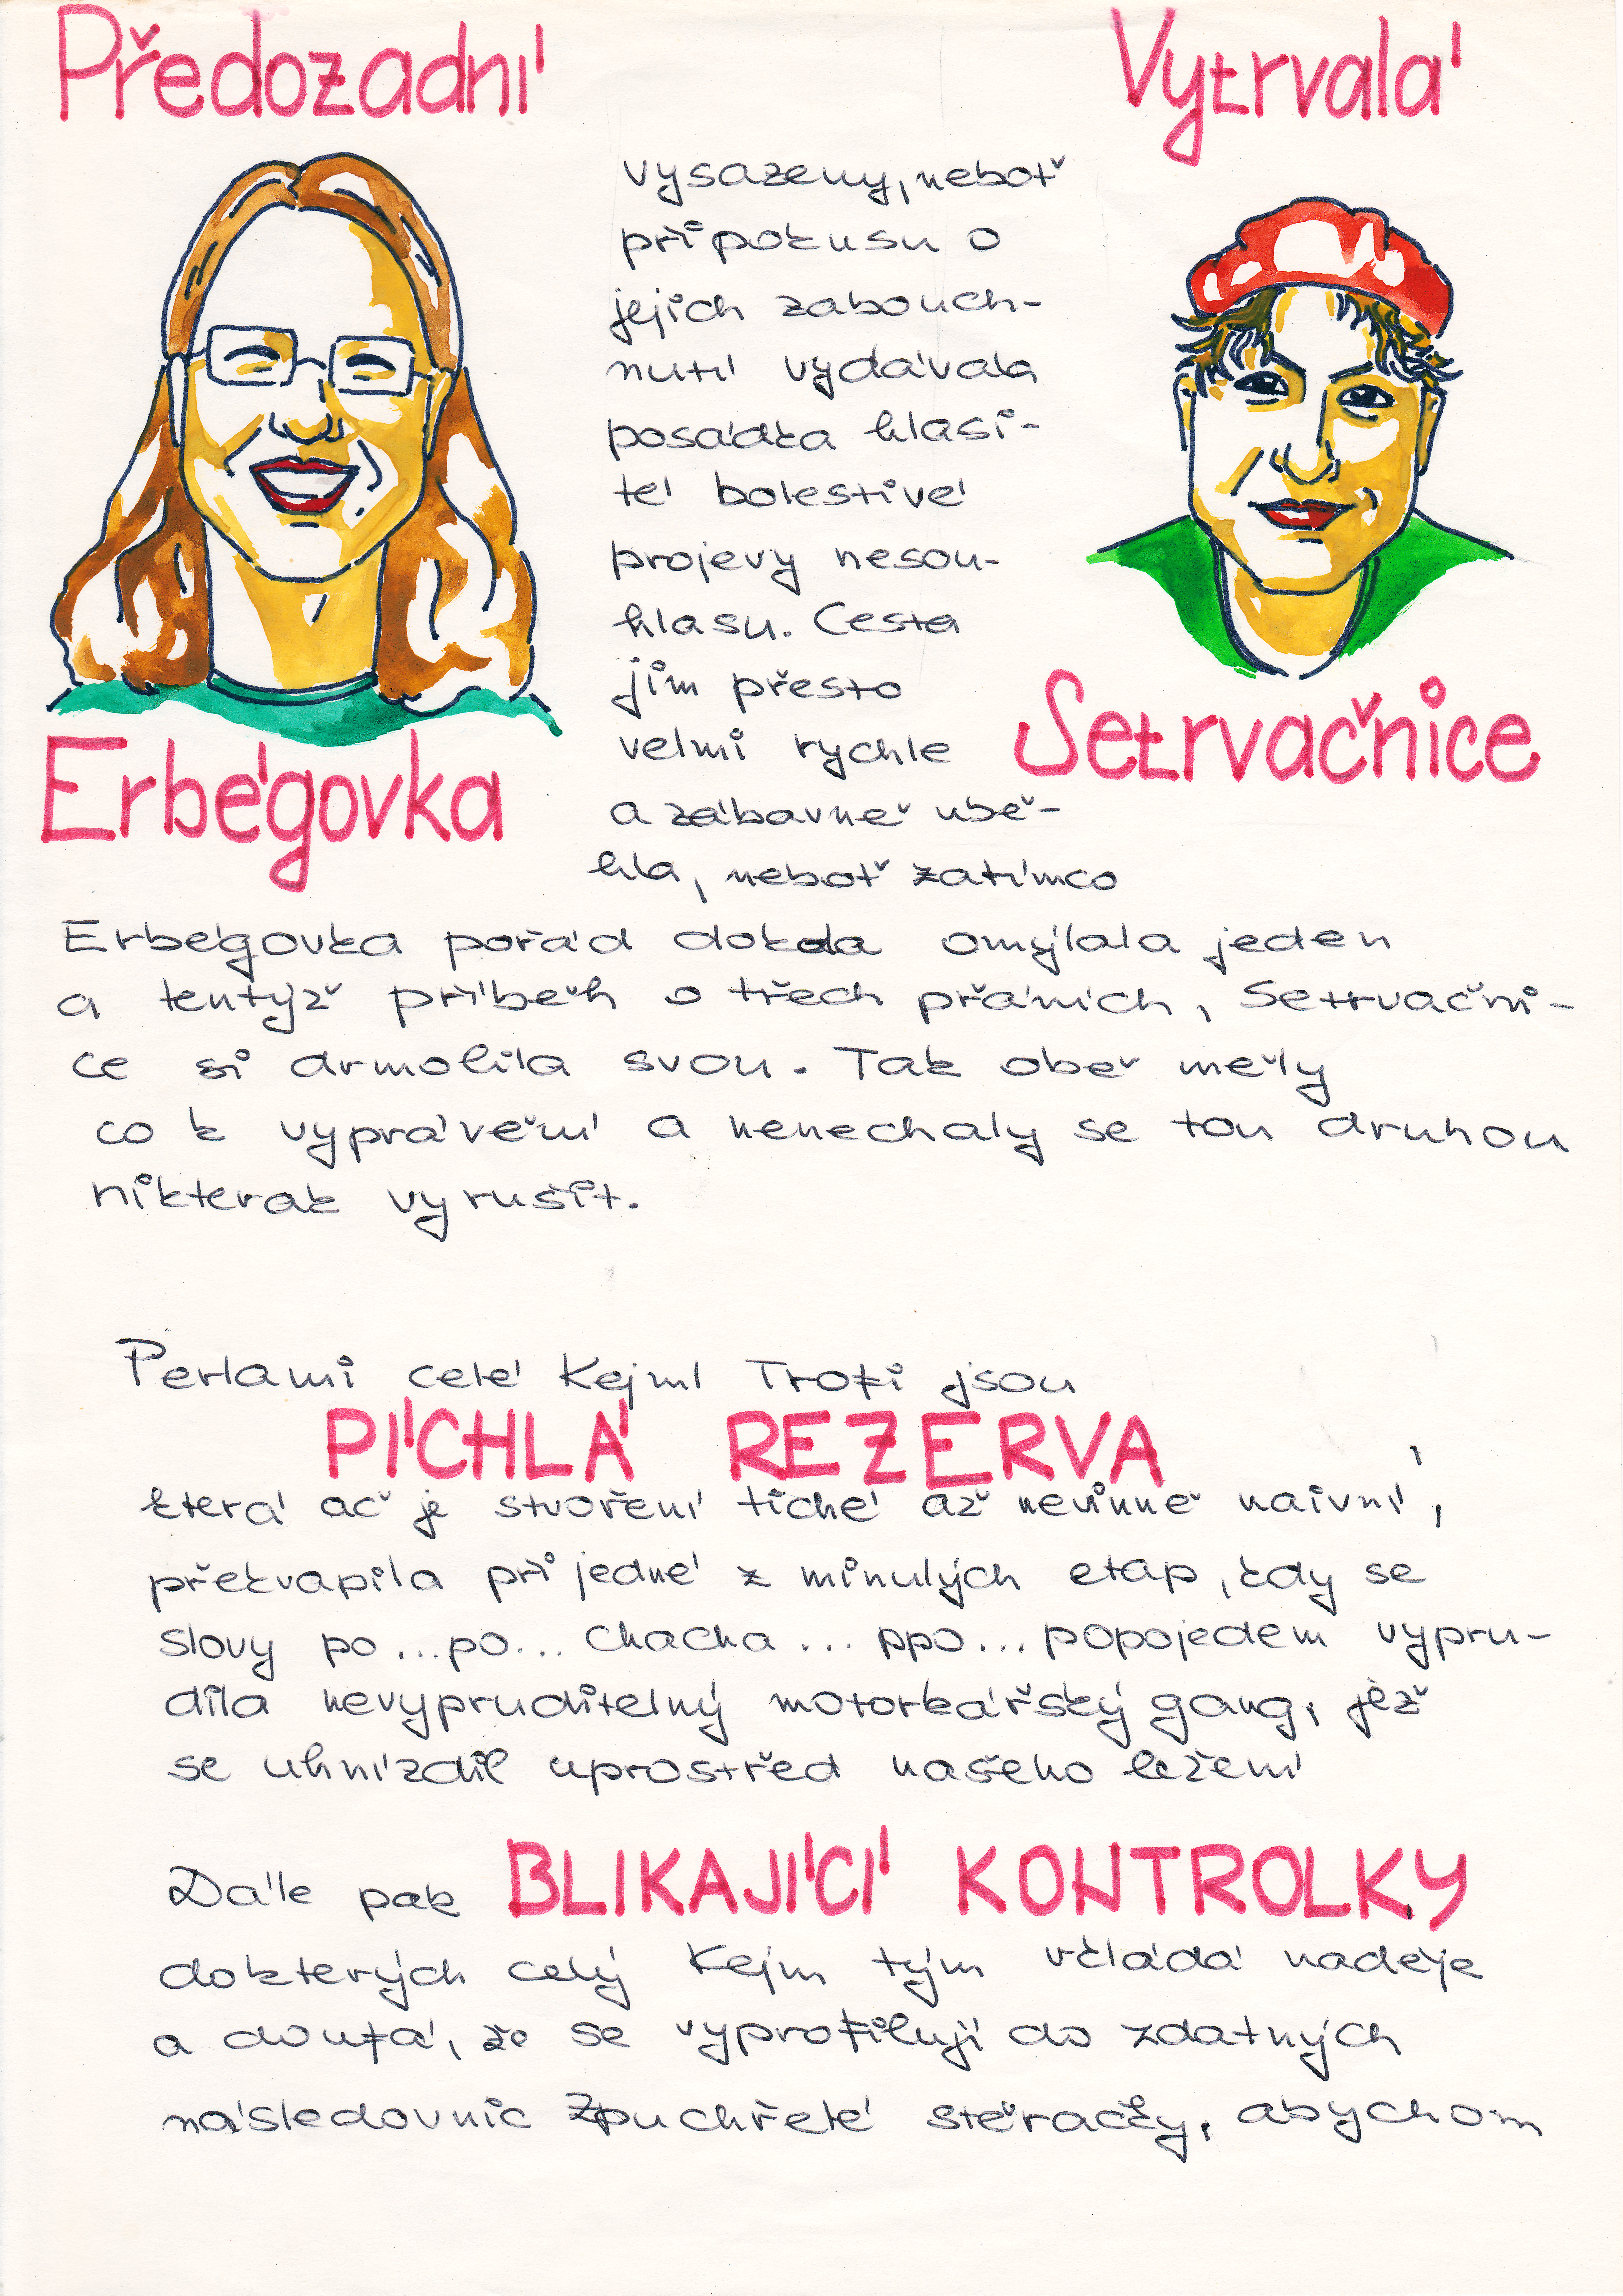 Předozadní
Erbégovka
Vytrvalá
Setrvačnice
vysazeny, neboť
při pokusu o
jejich zabouch-
nutí vydávala
posádka hlasi-
té bolestivé
projevy nesou-
hlasu. Cesta
jim přesto
velmi rychle
a zábavně ubě-
hla, neboť zatímco
Erbégovka pořád dokola omýlala jeden
a tentýž příběh o třech přáních, Setrvačni-
ce si drmolila svou. Tak obě měly
co k vyprávění a nenechaly se tou druhou
nikterak vyrušit.
Perlami celé Kejml Trofi jsou
PÍCHLÁ REZERVA
která ač je stvoření tiché až nevinně naivní,
překvapila při jedné z minulých etap, kdy se
slovy po...po... chacha ... ppo... popojedem vypru-
dila nevypruditelný motorkářský gang, jež
se uhnízdil uprostřed našeho ležení
Dále pak BLIKAJÍCÍ KONTROLKY
do kterých celý Kejm tým vkládá naděje
a doufá, že se vyprofilují do zdatných
následovnic Zpuchřelé stěračky, abychom